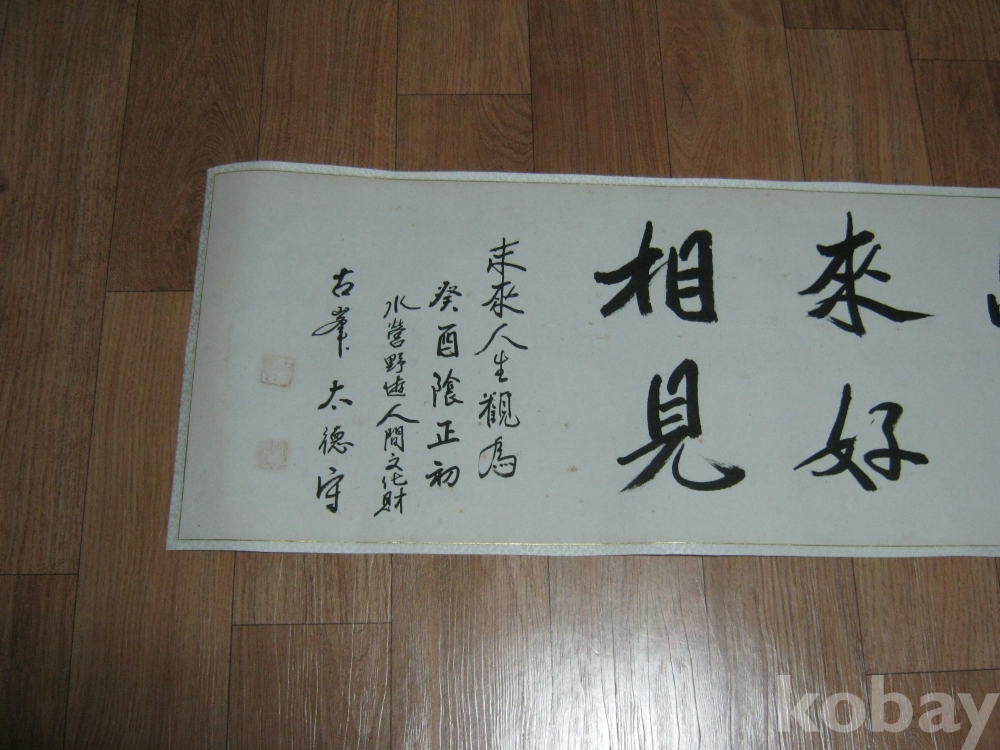 來好
相見
未來人生觀為
癸酉陰正初
水營野遊人間文化財
古峯 太德守
kobay